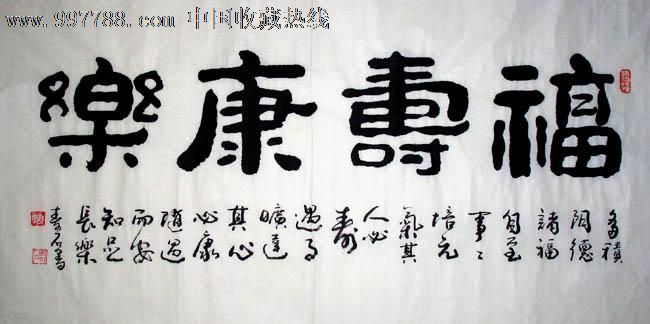 www.997788.com 中国收藏热线
福壽康樂
多積
阴德
諸福
自至
事々
培元
氣其
人必
壽
遇事
曠達
其心
必康
隨遇
而安
知足
長樂